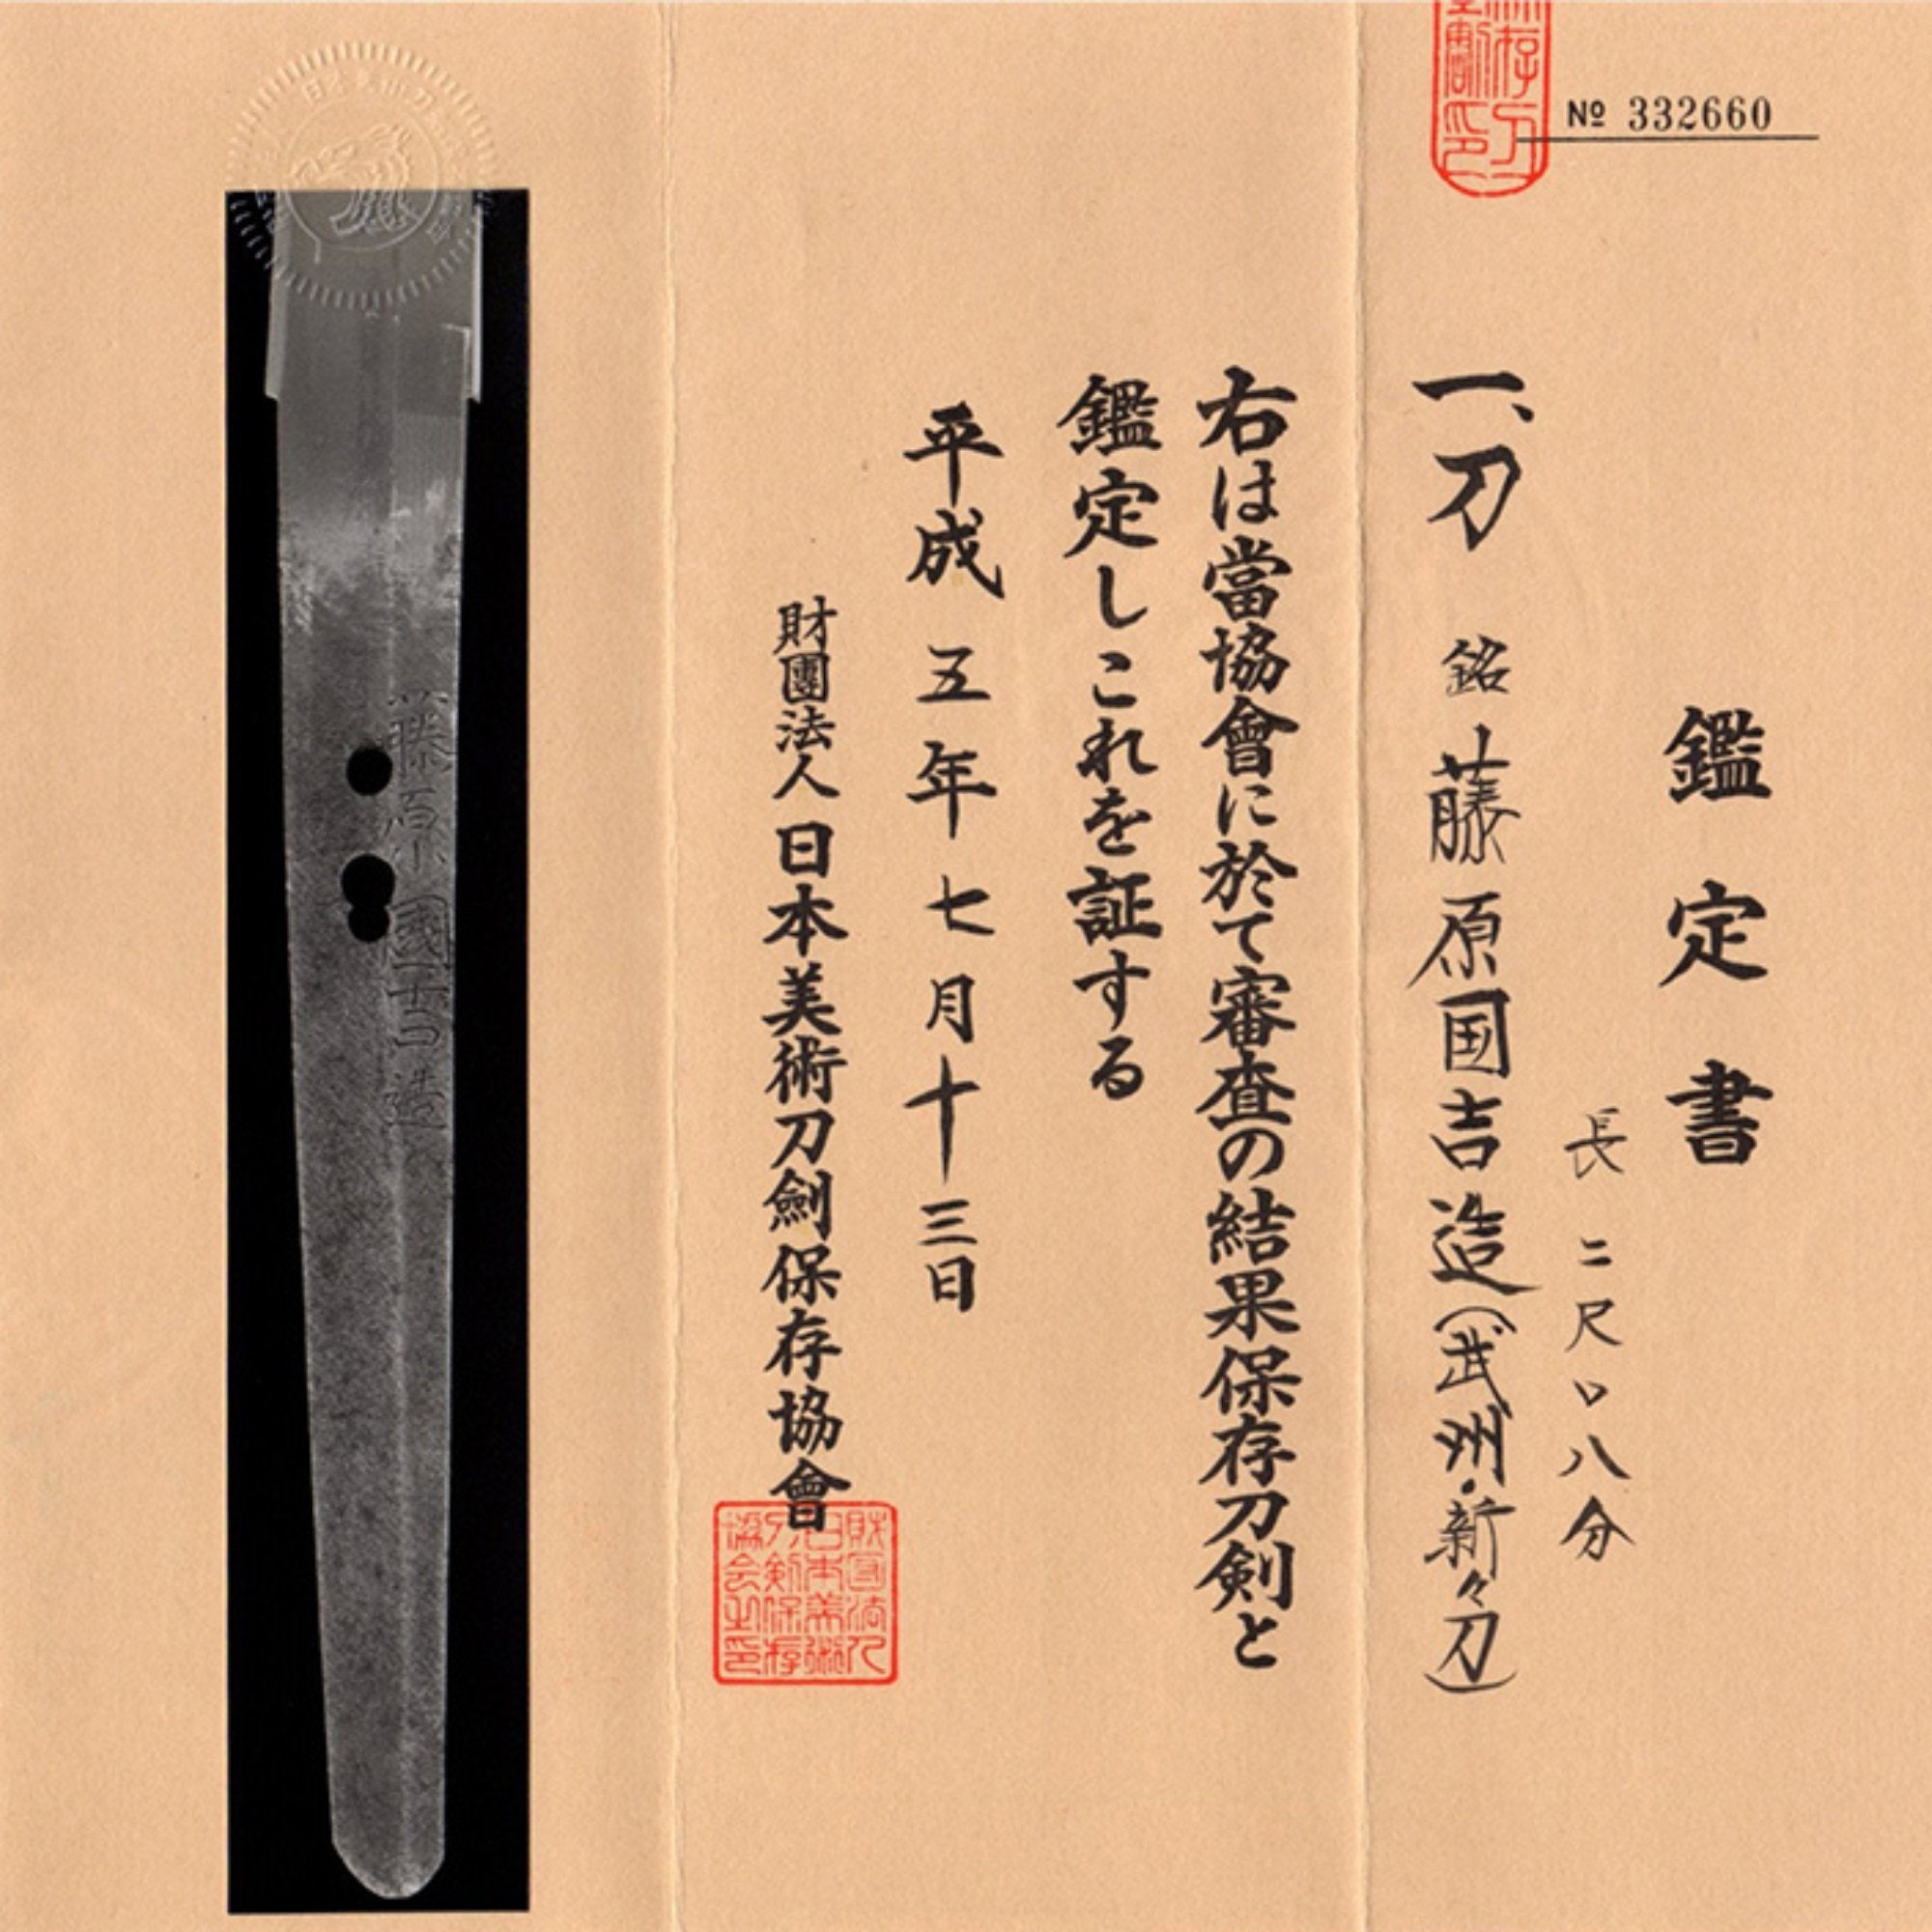 № 332660
鑑定書
長 二尺〇八分
一、刀 銘 藤原国吉造(武州・新々刀)
右は當協會に於て審査の結果保存刀剣と
鑑定しこれを証する
平成五年七月十三日
財團法人日本美術刀劍保存協會
財団法人
日本美術
刀剣保存
協会之印
藤原國吉造